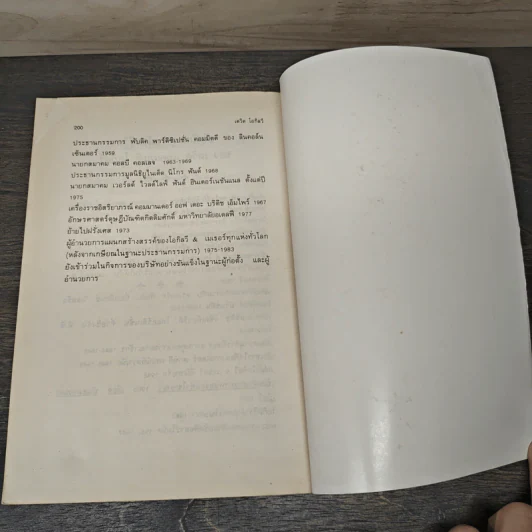 200
เดวิด โอกิลวี
ประธานกรรมการ พับลิค พาร์ติซิเปชั่น คอมมิตตี ของ ลินคอล์น
เซ็นเตอร์ 1959
นายกสมาคม คอลบี้ คอลเลจ 1963-1969
ประธานกรรมการมูลนิธิยูไนเต็ด นิโกร ฟันด์ 1968
นายกสมาคม เวอร์ลด์ ไวลด์ไลฟ์ ฟันด์ อินเตอร์เนชันแนล ตั้งแต่ปี
1975
เครื่องราชอิสริยาภรณ์ คอมมานเดอร์ ออฟ เดอะ บริติช เอ็มไพร์ 1967
อักษรศาสตร์ดุษฎีบัณฑิตกิตติมศักดิ์ มหาวิทยาลัยอเดลฟี 1977
ย้ายไปฝรั่งเศส 1973
ผู้อำนวยการแผนกสร้างสรรค์ของโอกิลวี & เมเธอร์ทุกแห่งทั่วโลก
(หลังจากเกษียณในฐานะประธานกรรมการ) 1975-1983
ยังเข้าร่วมในกิจการของบริษัทอย่างขันแข็งในฐานะผู้ก่อตั้ง และผู้
อำนวยการ